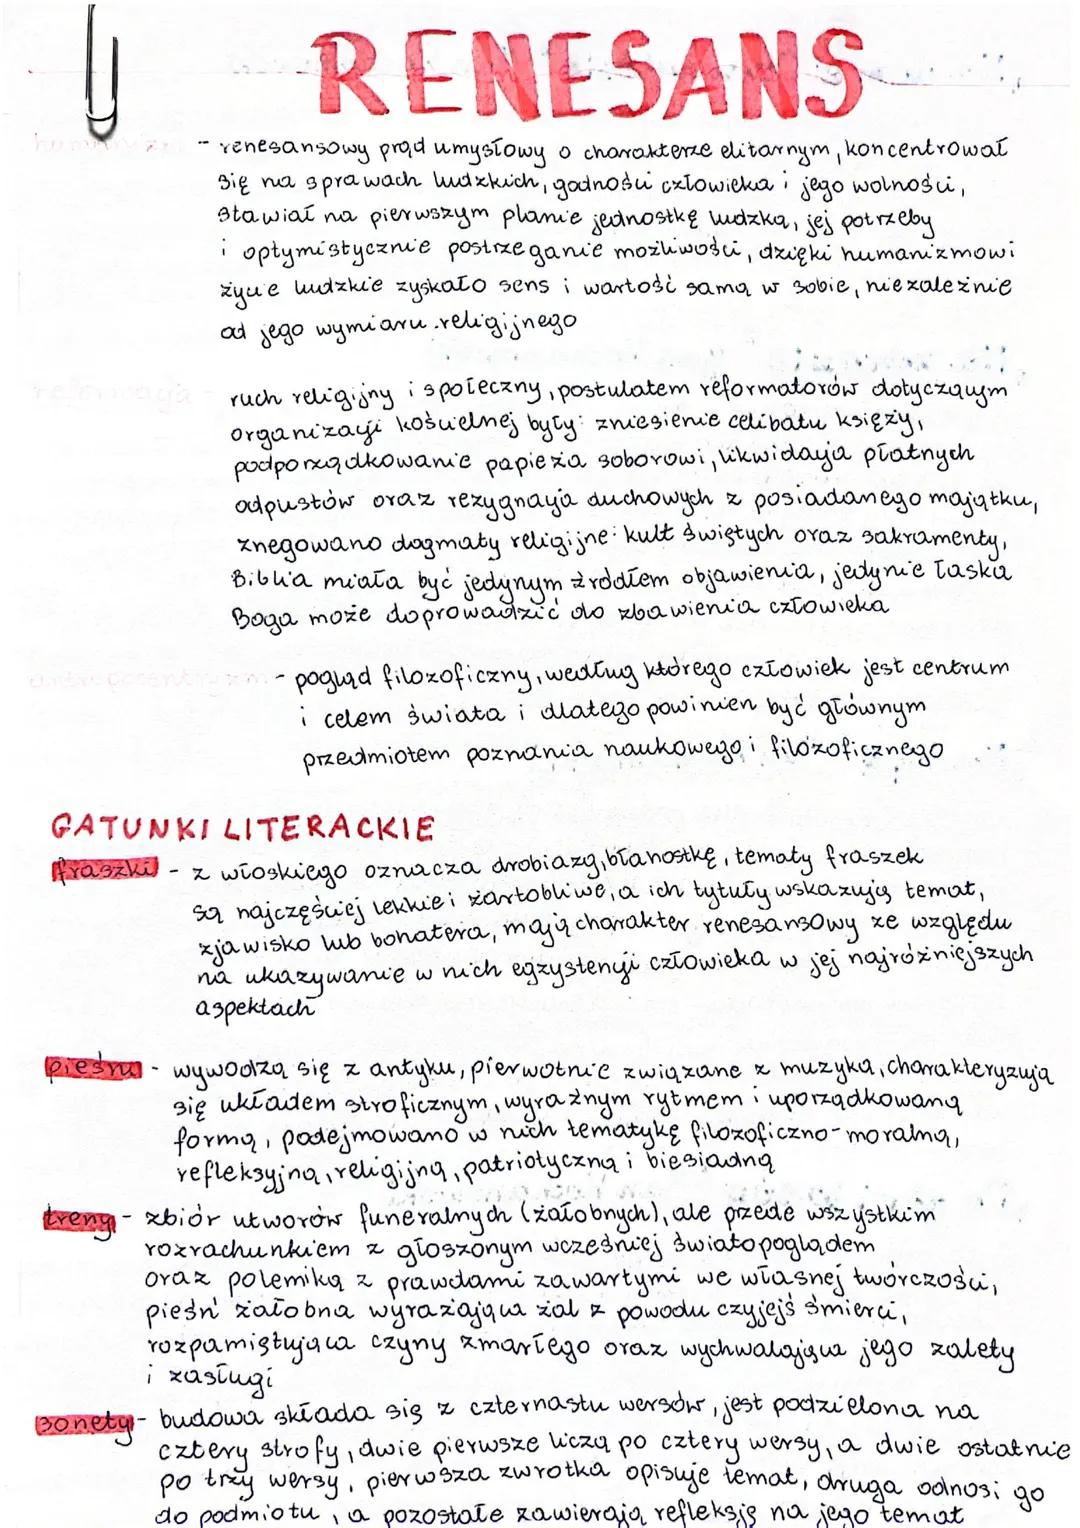 RENESANS
humanizm - renesansowy prąd umysłowy o charakterze elitarnym, koncentrował
się na sprawach ludzkich, godności człowieka i jego wolności,
stawiał na pierwszym planie jednostkę ludzką, jej potrzeby
i optymistycznie postrzeganie możliwości, dzięki humanizmowi
życie ludzkie zyskało sens i wartość samą w sobie, niezależnie
od jego wymiaru religijnego
reformacja - ruch religijny i społeczny, postulatem reformatorów dotyczącym
organizacji kościelnej były: zniesienie celibatu księży,
podporządkowanie papieża soborowi, likwidacja płatnych
odpustów oraz rezygnacja duchowych z posiadanego majątku,
znegowano dogmaty religijne: kult świętych oraz sakramenty,
Biblia miała być jedynym źródłem objawienia, jedynie łaska
Boga może doprowadzić do zbawienia człowieka
antroposentryzm - pogląd filozoficzny, według którego człowiek jest centrum
i celem świata i dlatego powinien być głównym
przedmiotem poznania naukowego i filozoficznego
GATUNKI LITERACKIE
fraszki - z włoskiego oznacza drobiazg, błanostkę, tematy fraszek
są najczęściej lekkie i żartobliwe, a ich tytuły wskazują temat,
zjawisko lub bohatera, mają charakter renesansowy ze względu
na ukazywanie w nich egzystencji człowieka w jej najróżniejszych
aspektach
pieśni - wywodzą się z antyku, pierwotnie związane z muzyką, charakteryzują
się układem stroficznym, wyraźnym rytmem i uporządkowaną
formą, podejmowano w nich tematykę filozoficzno-moralną,
refleksyjną, religijną, patriotyczną i biesiadną
treny - zbiór utworów funeralnych (żałobnych), ale przede wszystkim
rozrachunkiem z głoszonym wcześniej światopoglądem
oraz polemiką z prawdami zawartymi we własnej twórczości,
pieśń żałobna wyrażająca żal z powodu czyjejś śmierci,
rozpamiętująca czyny zmarłego oraz wychwalająca jego zalety
i zasługi
sonety - budowa składa się z czternastu wersów, jest podzielona na
cztery strofy, dwie pierwsze liczą po cztery wersy, a dwie ostatnie
po trzy wersy, pierwsza zwrotka opisuje temat, druga odnosi go
do podmiotu, a pozostałe zawierają refleksję na jego temat